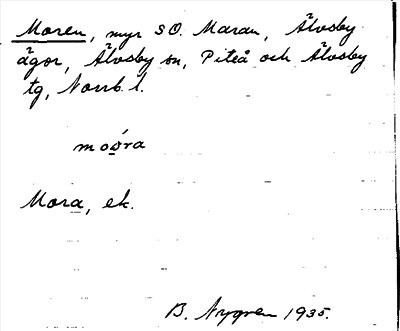 Moren, myr SO. Maran, Älvsby
ägor, Älvsby sn, Piteå och Älvsby
tg, Norrb. l.
moo̱´ra
Mora, ek.
B. Nygren 1935.